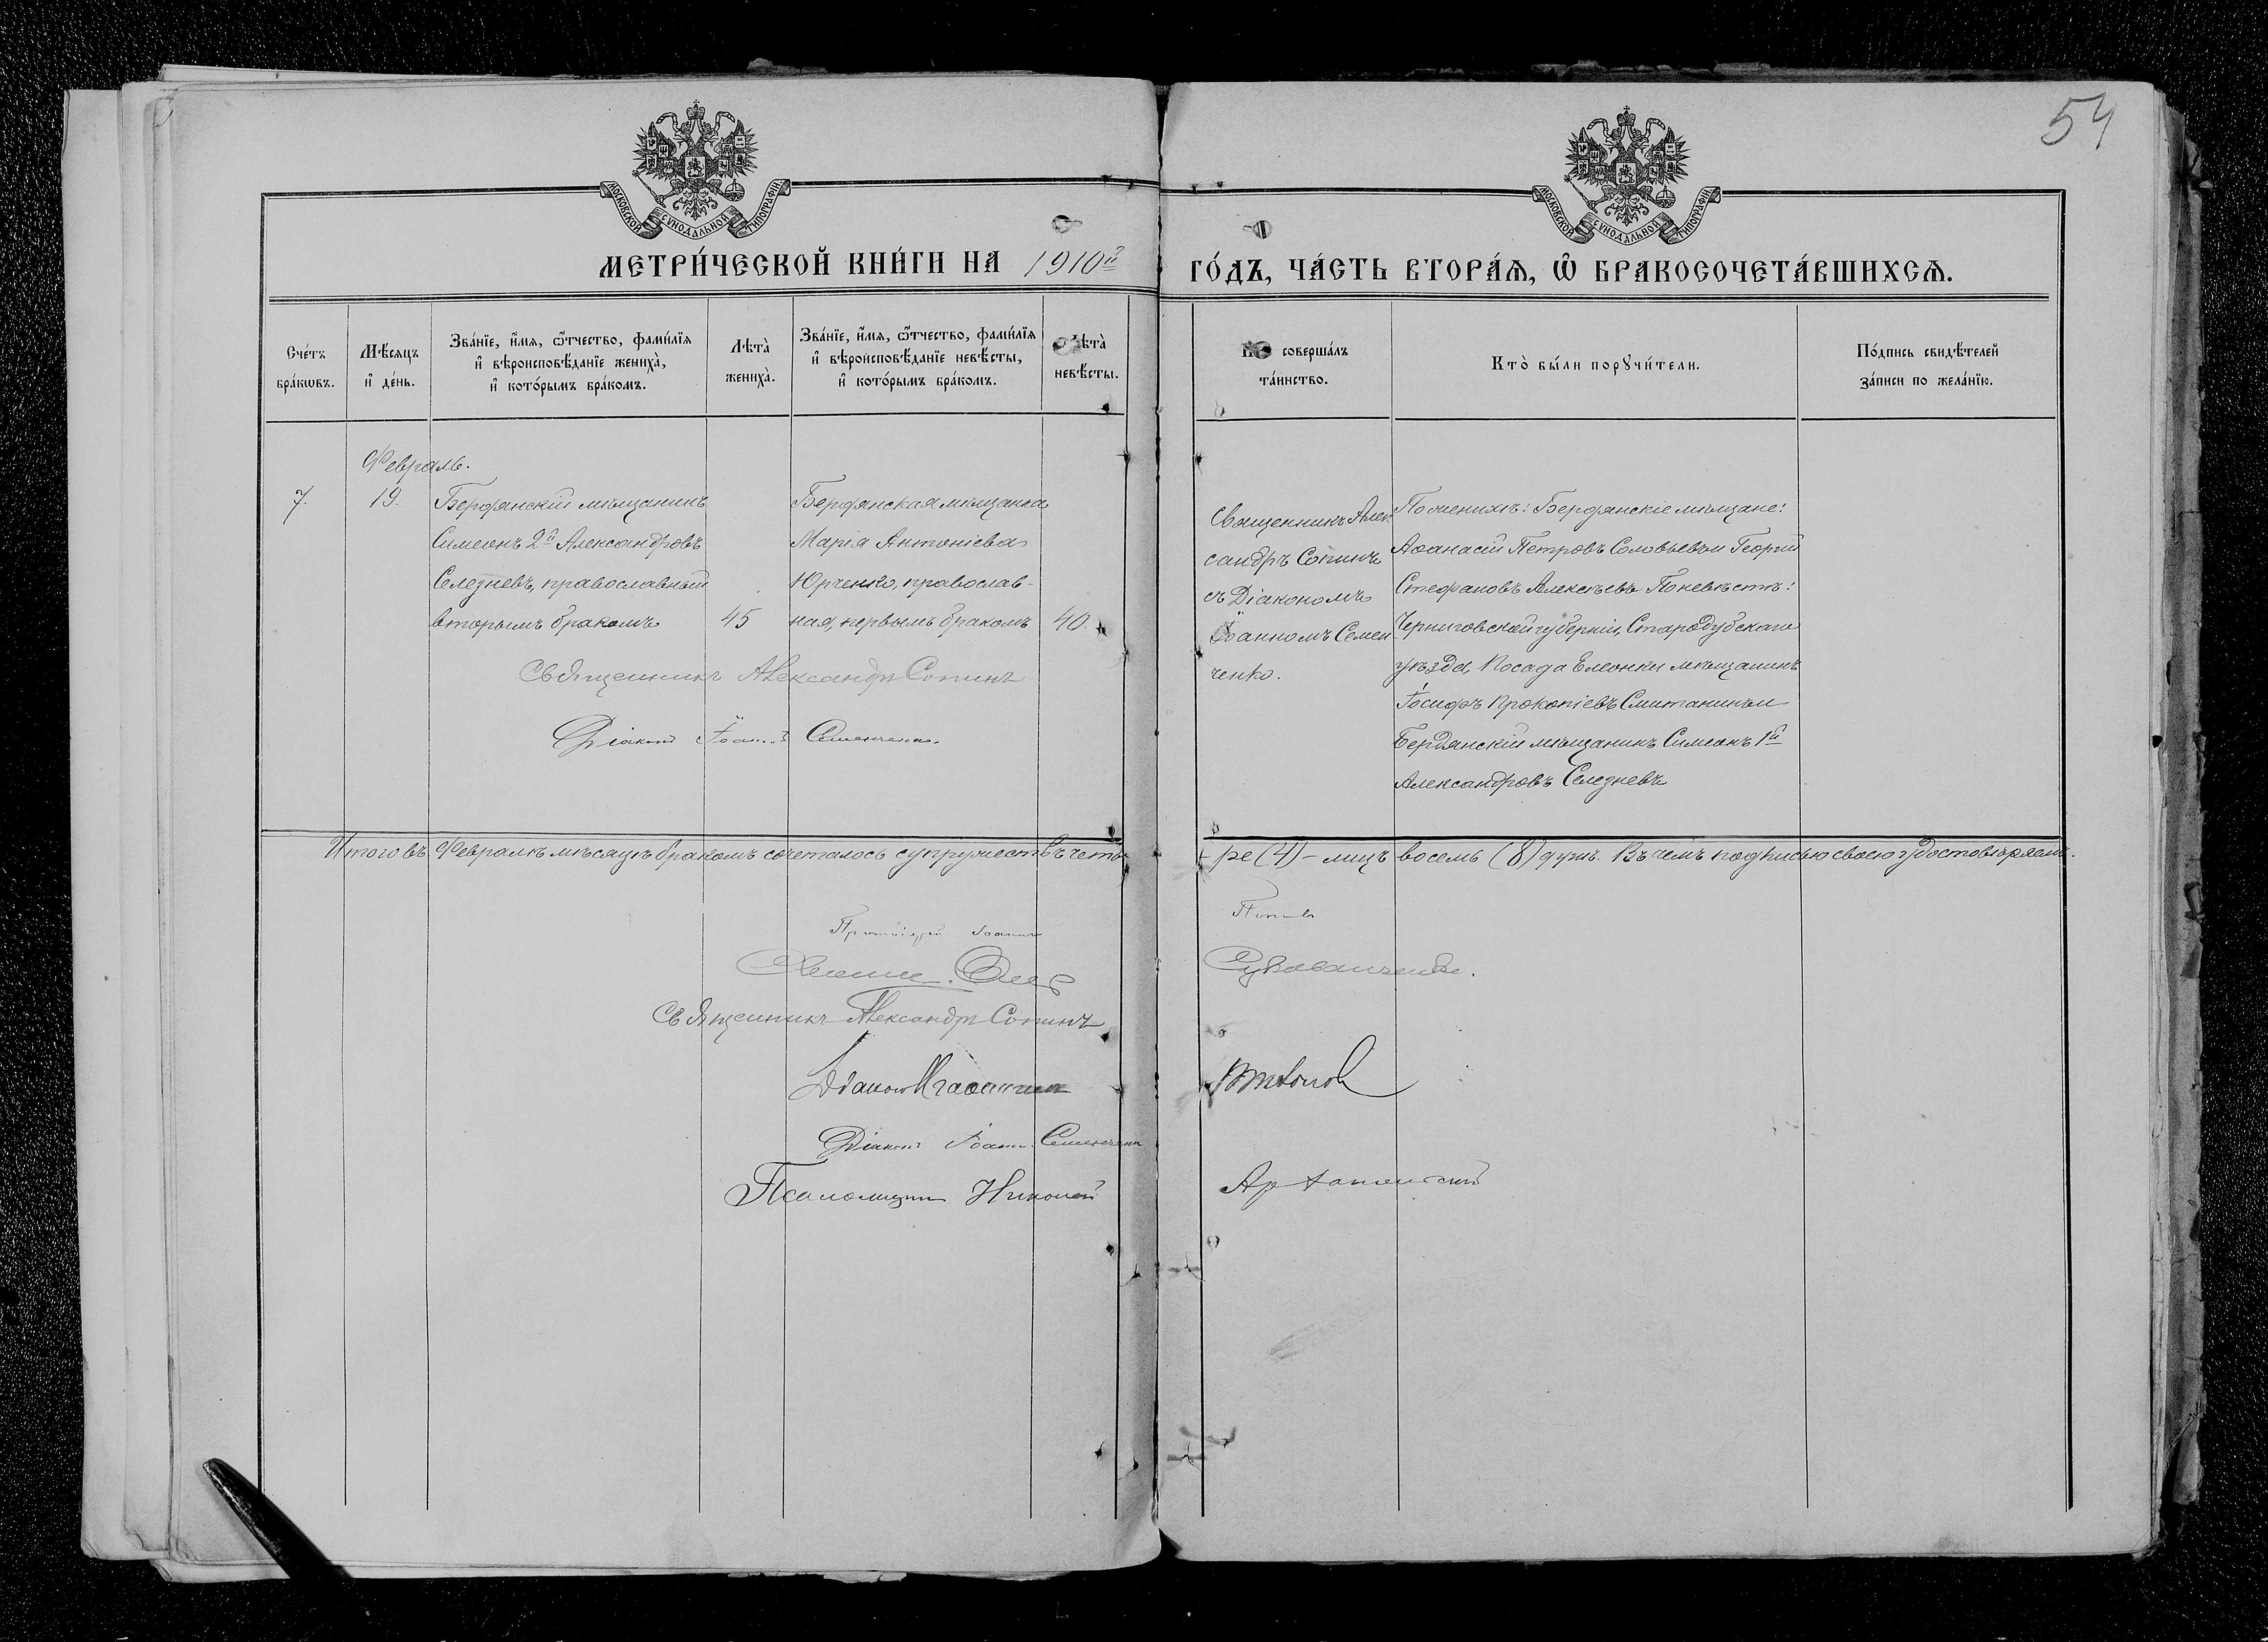 54
МОСКОВСКОЙ СѴНОДАЛЬНОЙ ТИПОГРАФІИ
МОСКОВСКОЙ СѴНОДАЛЬНОЙ ТИПОГРАФІИ
МЕТРИ́ЧЕСКОЙ КНИ́ГИ НА 1910й ГО́ДЪ, ЧА́СТЬ ВТОРА́Ѧ, Ѽ БРАКОСОЧЕТА́ВШИХСѦ.
Сче́тъ бра́кωвъ.
Мѣ́сяцъ и҆ де́нь.
Зва́нїе, и҆́мя, ѻ҆́тчество, фами́лїя
и҆ вѣроисповѣ́данїе жениха̀,
и҆ кото́рымъ бра́комъ.
Лѣта̀ жениха̀.
Зва́нїе, и҆́мя, ѻ҆́тчество, фами́лїя
и҆ вѣроисповѣ́данїе невѣ́сты,
и҆ кото́рымъ бра́комъ.
Лѣта̀ невѣ́сты.
соверша́лъ
та́инство.
Кто̀ бы́ли порꙋчи́тели.
По́дпись свидѣ́телей
за́писи по жела́нїю.
Февраль.
7.
19.
Бердянскій мѣщанинъ
Симеонъ 2й Александровъ
Селезневъ, православный
вторымъ бракомъ
45
Бердянская мѣщанка
Марія Антоніева
Юрченко, православ-
ная, первымъ бракомъ
40.
Священникъ Алек
сандръ Сопинъ
съ Діакономъ
Іоанномъ Семен
ченко.
По женихѣ: Бердянскіе мѣщане:
Аѳанасій Петровъ Соловьевъ и Георгій
Стефановъ Алексѣевъ По невѣстѣ:
Черниговской губерніи, Стародубскаго
уѣзда, Посада Елионки мѣщанинъ
Іосифъ Прокопіевъ Смитанинъ и
Бердянскій мѣщанинъ Симеонъ 1й
Александровъ Селезневъ
Священникъ Александръ Сопинъ
Діаконъ Іоаннъ Семенченко.
Итого въ Февралѣ мѣсяцѣ бракомъ сочеталось супружествъ четы-
ре (4) – лицъ восемь (8) душъ. Въ чемъ подписью своею удостовѣряемъ.
Протоіерей Іоаннъ Поповъ
Священникъ Александръ Сопинъ
Діаконъ
Діаконъ Іоаннъ Семенченко
Псаломщикъ Николай